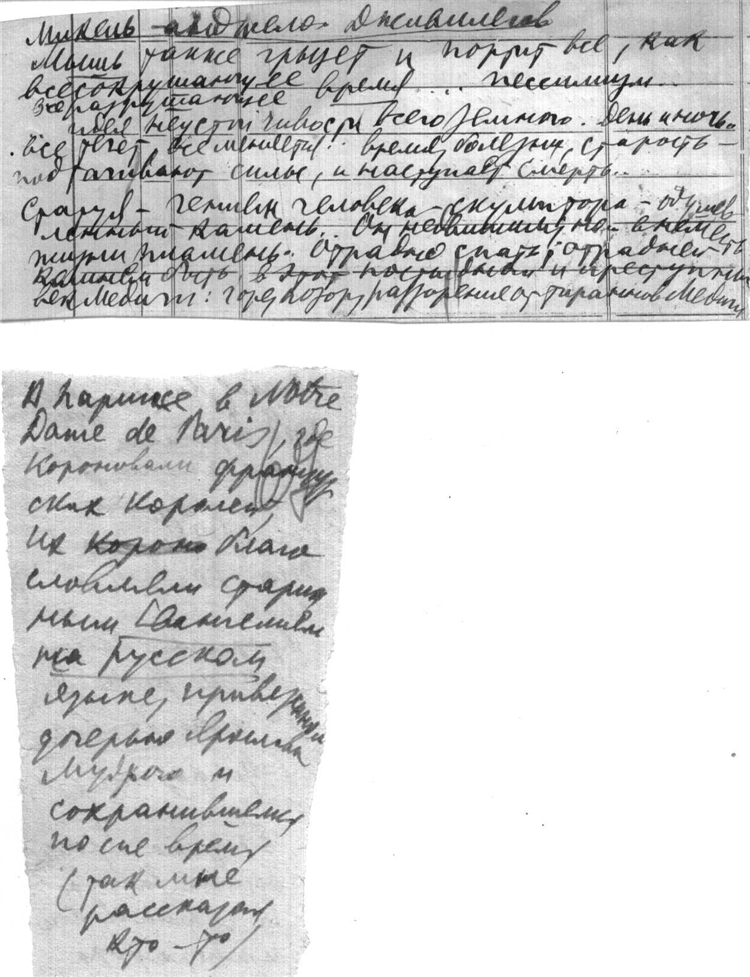 Микель-анджело Дживилегов
Мышь также грызет и портит все, как
всесокрушающее время... пессимизм
всеразрушающее
идея неустойчивости всего земного. День и ночь..
все течет, все меняется.. время, болезни, старость –
подтачивают силы, и наступает смерть..
Статуя – человека – скульптора –
камень.. Он –
жизни пламень. Отрадно спать, отрадней
камнем быть в этот постыдный и преступный
век Медичи: горе, позор, разорение от тиранов Медичи
В Париже в Notre
Dame de Paris, где
короновали францу
ских королей,
их корон благо
словляли старин
ным Евангелием
на русском
языке, привезенным
дочерью Ярослава
Мудрого и
сохранившемся
по сие время
(так мне
рассказал
кто-то)